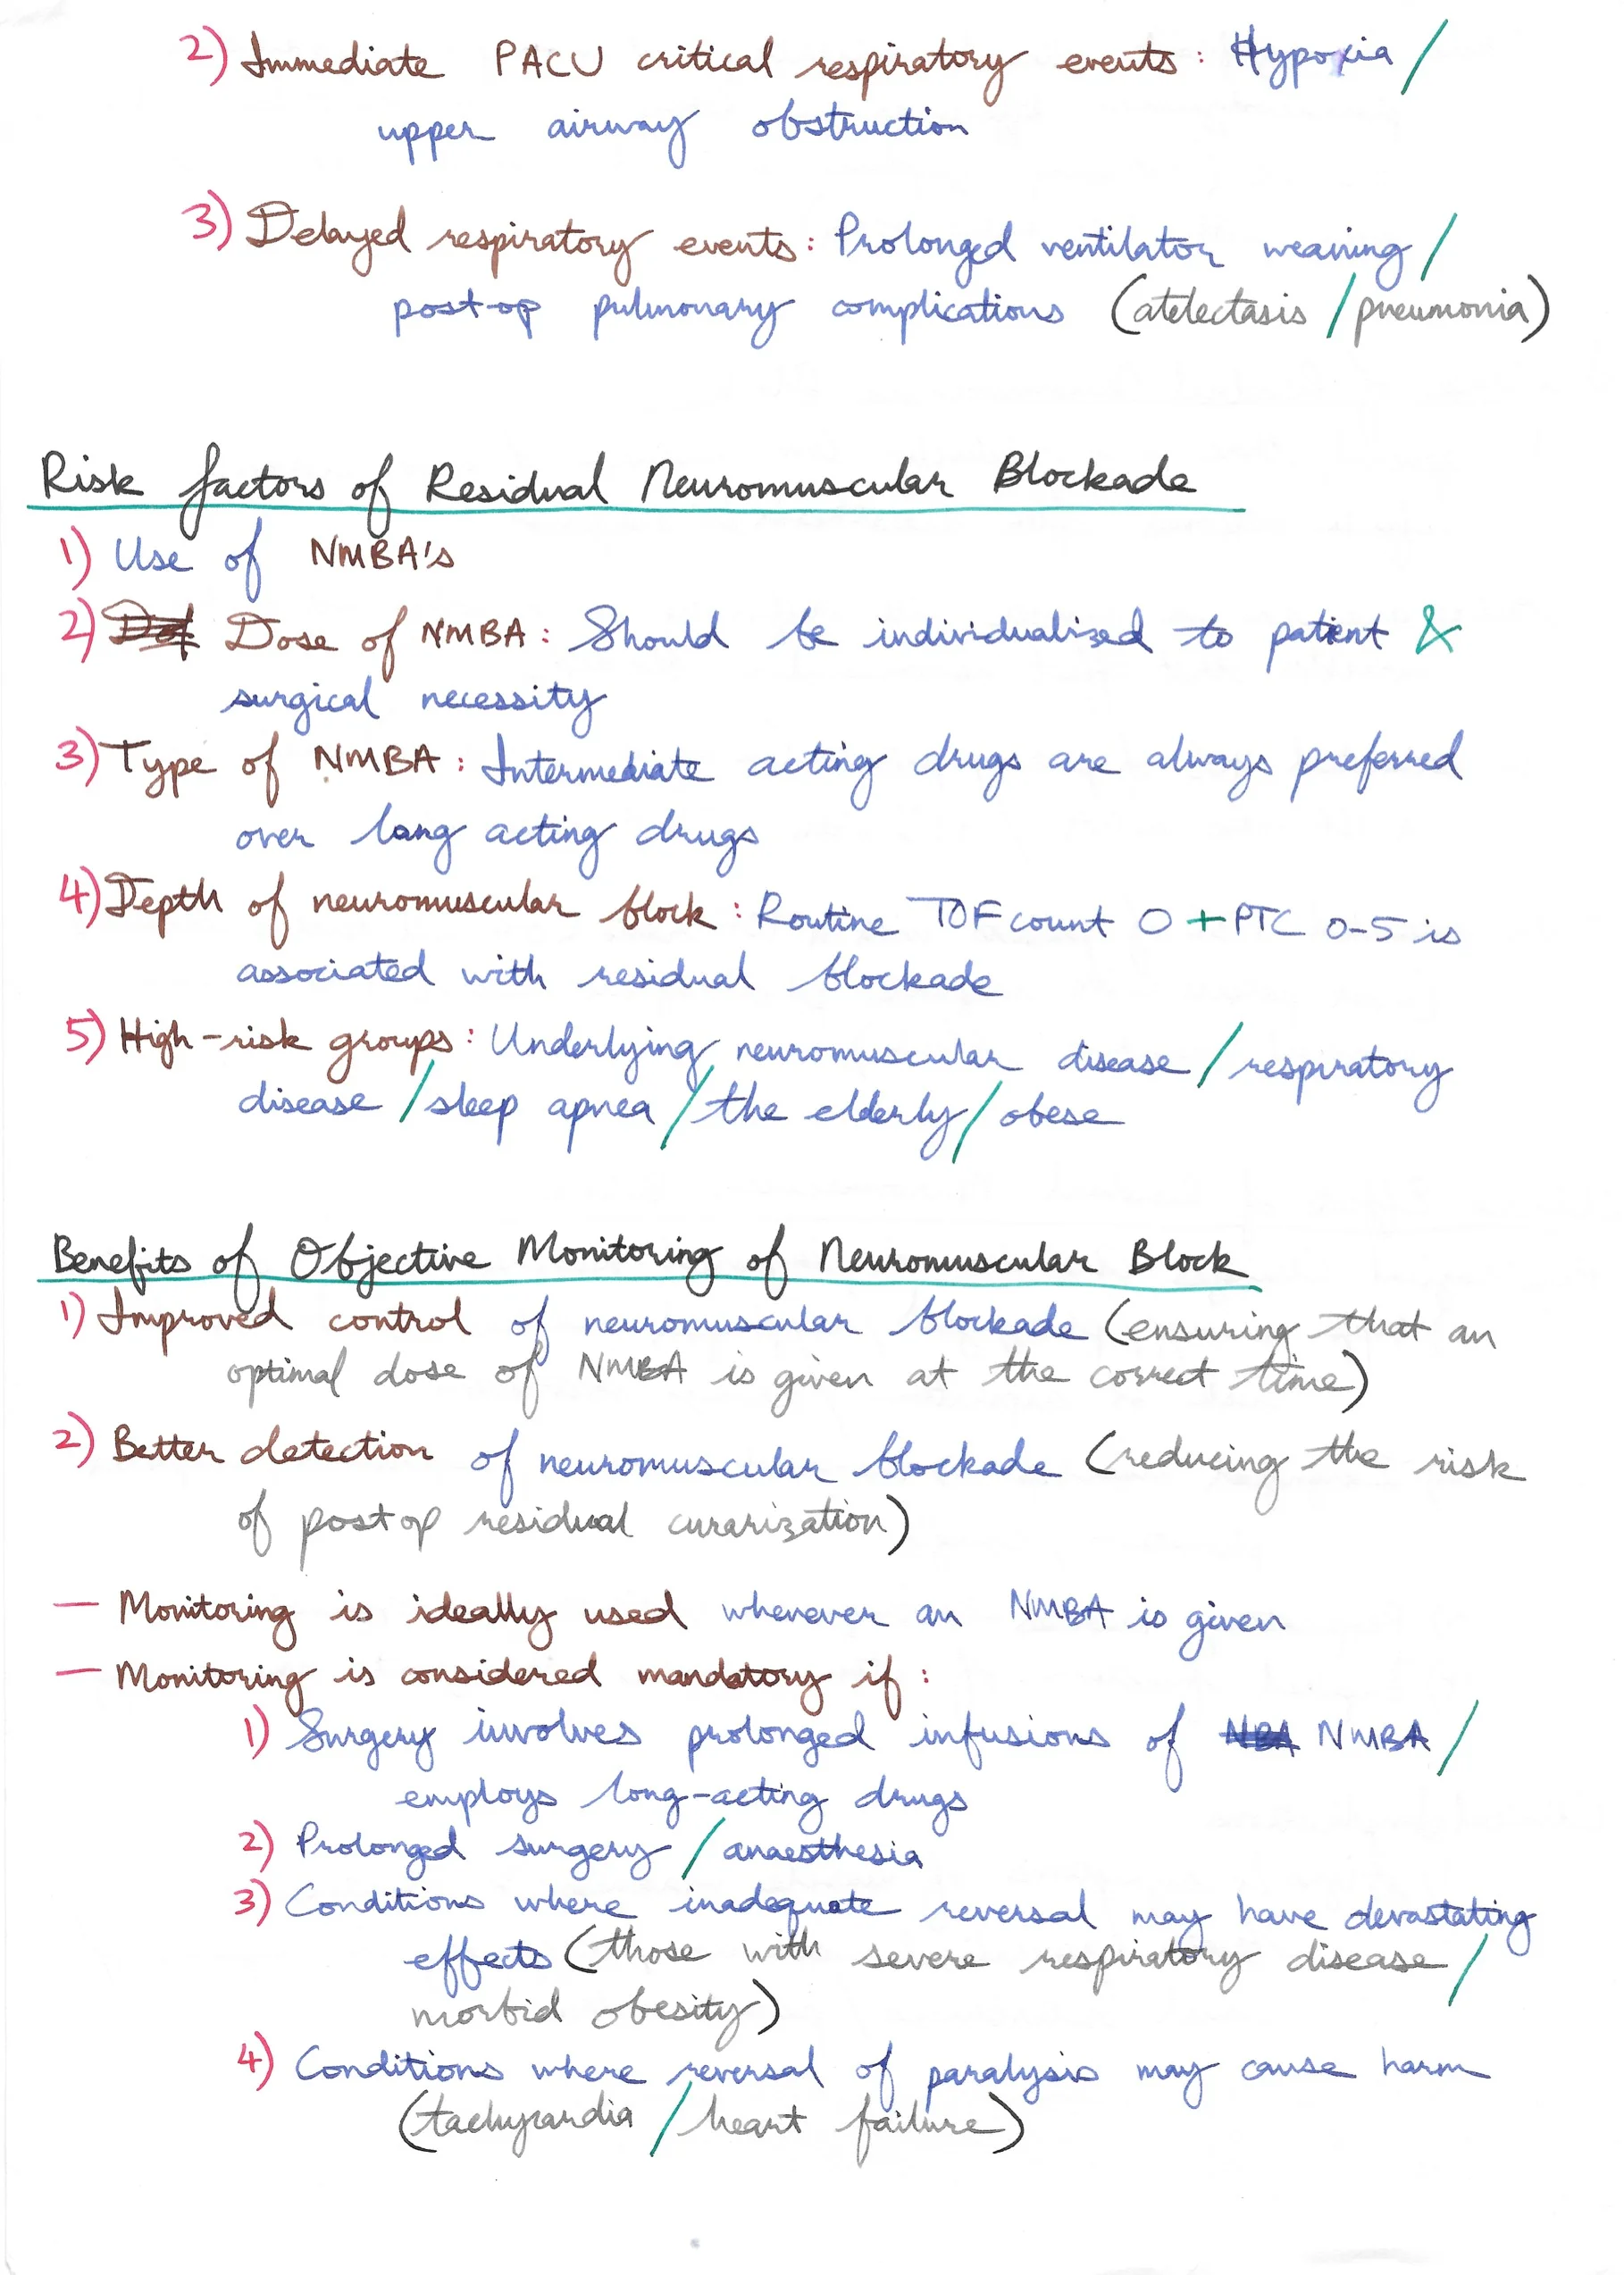 2) Immediate PACU critical respiratory events: Hypoxia/
upper airway obstruction
3) Delayed respiratory events: Prolonged ventilator weaning/
post-op pulmonary complications (atelectasis/pneumonia)
Risk factors of Residual Neuromuscular Blockade
1) Use of NMBA's
2) Dose of NMBA: Should be individualized to patient &
surgical necessity
3) Type of NMBA: Intermediate acting drugs are always preferred
over long acting drugs
4) Depth of neuromuscular block: Routine TOF count 0 + PTC 0-5 is
associated with residual blockade
5) High-risk groups: Underlying neuromuscular disease/respiratory
disease/sleep apnea/the elderly/obese
Benefits of Objective Monitoring of Neuromuscular Block
1) Improved control of neuromuscular blockade (ensuring that an
optimal dose of NMBA is given at the correct time)
2) Better detection of neuromuscular blockade (reducing the risk
of post op residual curarization)
— Monitoring is ideally used whenever an NMBA is given
— Monitoring is considered mandatory if:
1) Surgery involves prolonged infusions of NMBA/
employs long-acting drugs
2) Prolonged surgery/anaesthesia
3) Conditions where inadequate reversal may have devastating
effects (those with severe respiratory disease/
morbid obesity)
4) Conditions where reversal of paralysis may cause harm
(tachycardia/heart failure)